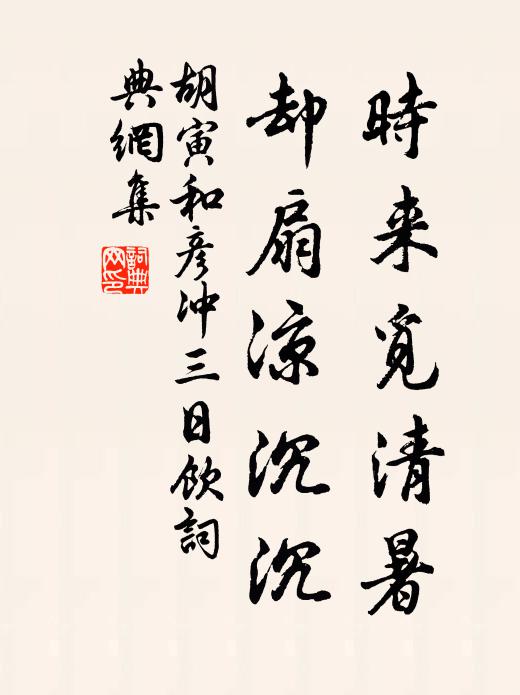 時来覓清暑
却扇凉沉沉
胡寅和彦冲三日飲詞
典網集
詞典
网印